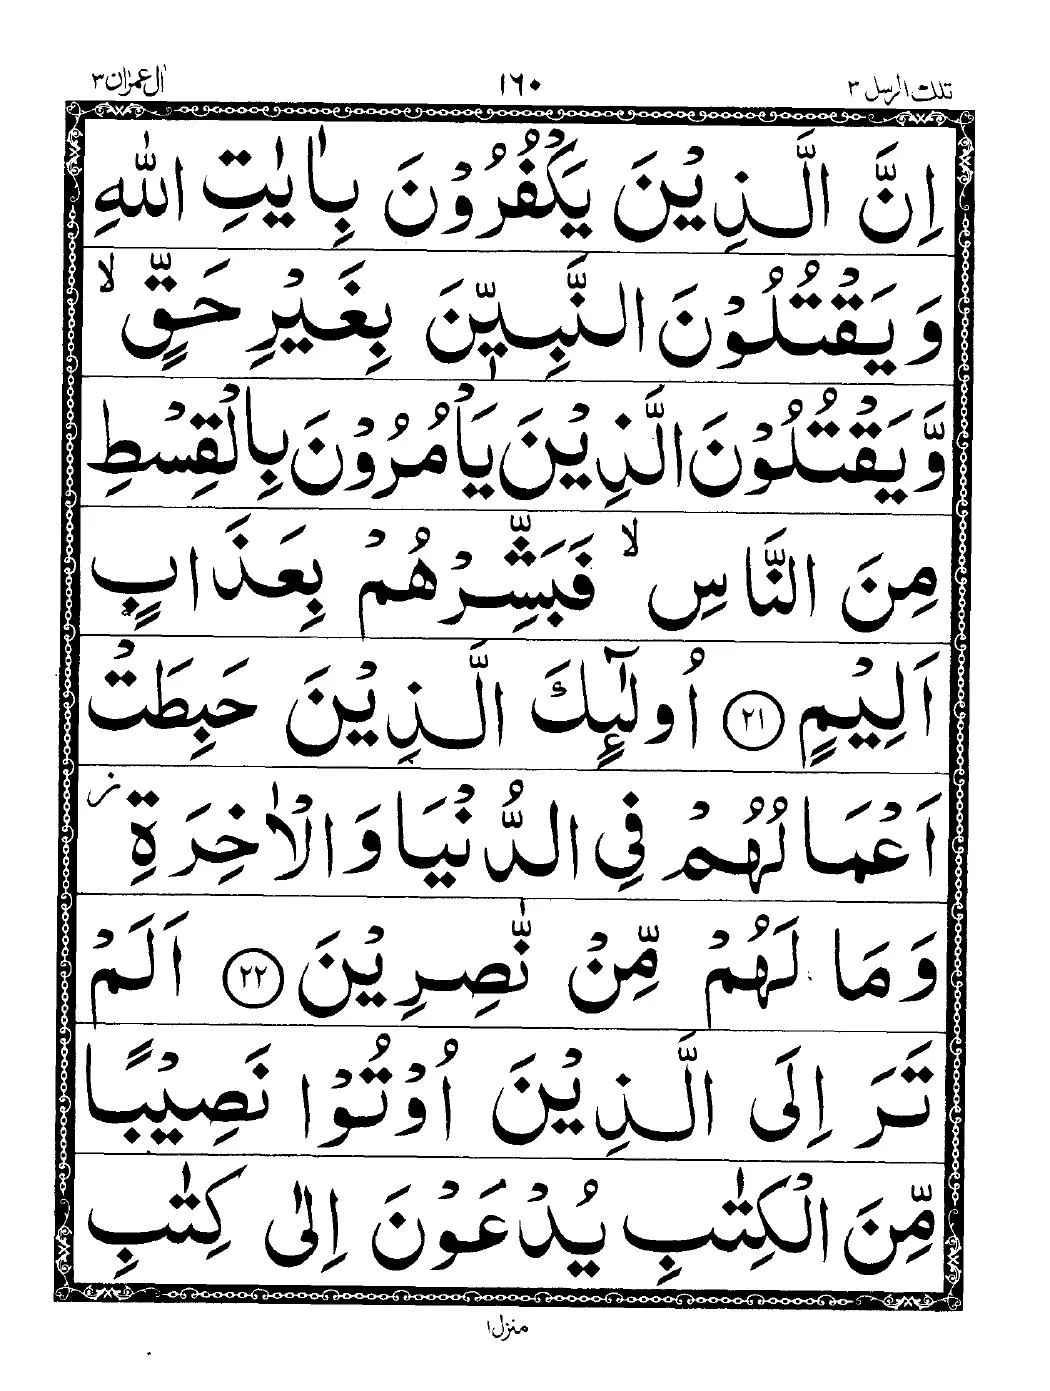 تلك الرسل ٣
١٦٠
اٰل عمرٰن ٣
اِنَّ الَّذِيْنَ يَكْفُرُوْنَ بِاٰيٰتِ اللّٰهِ
وَيَقْتُلُوْنَ النَّبِيّٖنَ بِغَيْرِ حَقٍّ ۙ
وَّيَقْتُلُوْنَ الَّذِيْنَ يَاْمُرُوْنَ بِالْقِسْطِ
مِنَ النَّاسِ ۙ فَبَشِّرْهُمْ بِعَذَابٍ
اَلِيْمٍ ﴿٢١﴾ اُولٰٓئِكَ الَّذِيْنَ حَبِطَتْ
اَعْمَالُهُمْ فِي الدُّنْيَا وَالْاٰخِرَةِ ز
وَمَا لَهُمْ مِّنْ نّٰصِرِيْنَ ﴿٢٢﴾ اَلَمْ
تَرَ اِلَى الَّذِيْنَ اُوْتُوْا نَصِيْبًا
مِّنَ الْكِتٰبِ يُدْعَوْنَ اِلٰى كِتٰبِ
منزل ١